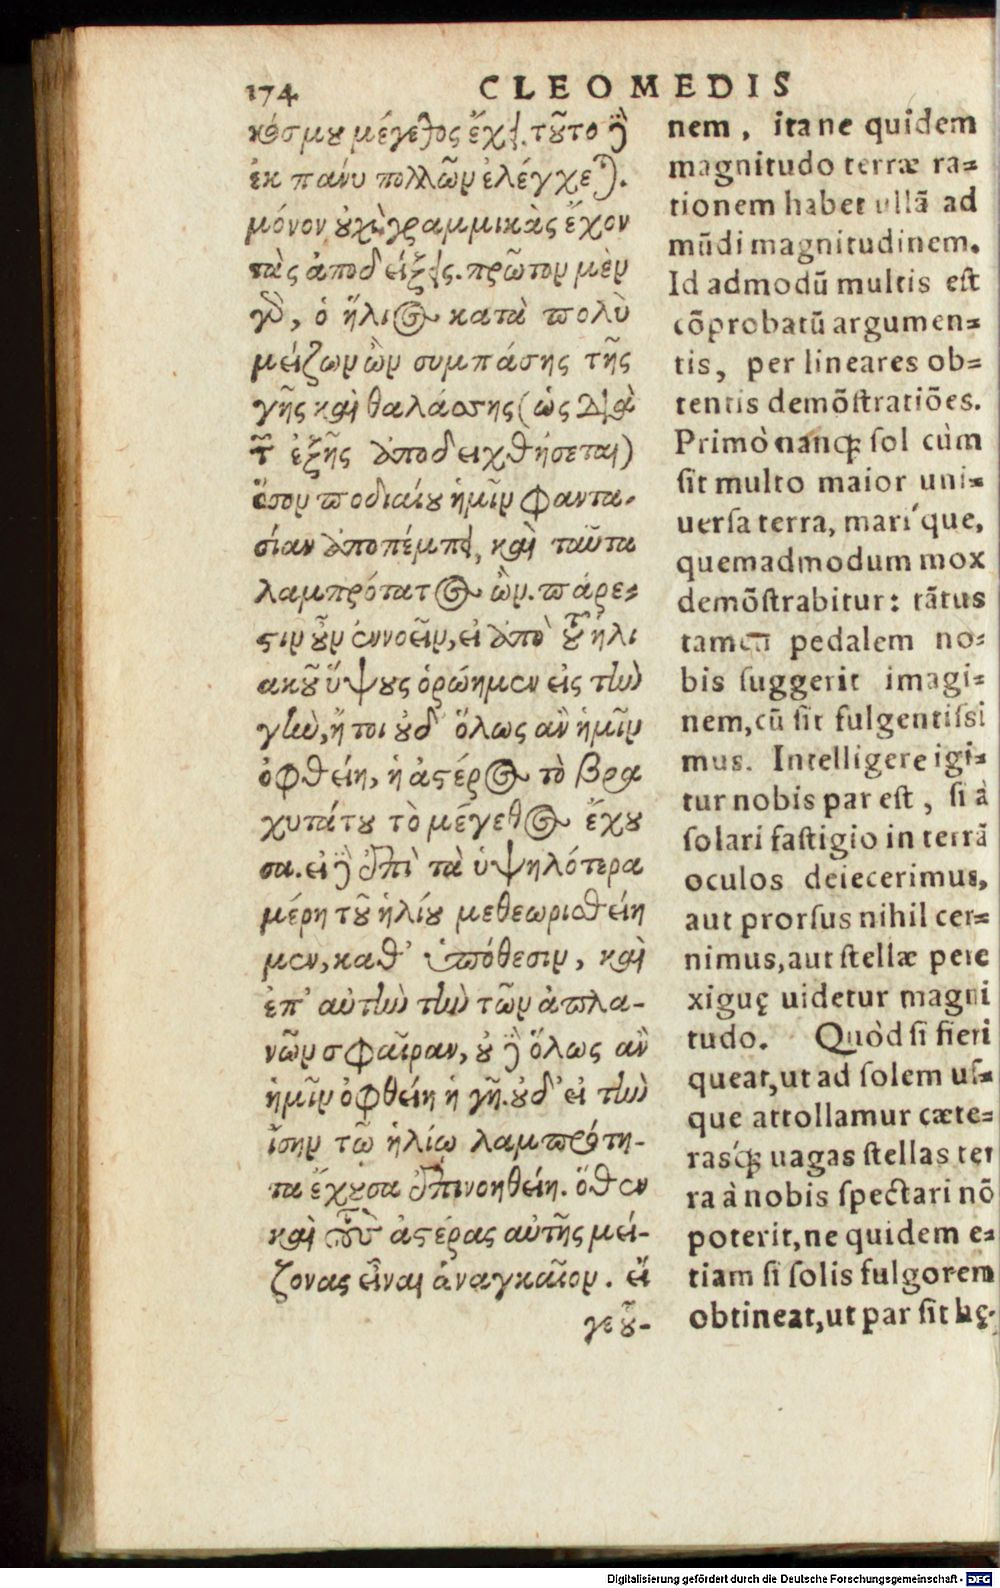 174 CLEOMEDIS
κόσμου μέγεθος ἔχει. τοῦτο δὲ
ἐκ πάνυ πολλῶν ἐλέγχεται.
μόνον οὐχὶ γραμμικὰς ἔχον
τὰς ἀποδείξεις. πρῶτον μὲν
γὰρ, ὁ ἥλιος κατὰ πολὺ
μείζων ὢν συμπάσης τῆς
γῆς καὶ θαλάσσης (ὡς διὰ
τῶν ἑξῆς ἀποδειχθήσεται)
ὅσον ποδιαίου ἡμῖν φαντα-
σίαν ἀποπέμπει, καὶ ταῦτα
λαμπρότατος ὤν. πάρε-
στιν οὖν ἐννοεῖν, εἰ ἀπὸ τοῦ ἡλι
ακοῦ ὕψους ὁρῴημεν εἰς τὴν
γῆν, ἤτοι οὐδ' ὅλως ἂν ἡμῖν
ὀφθείη, ἢ ἀστέρος τὸ βρα
χυτάτου τὸ μέγεθος ἔχου
σα. εἰ δὲ ἐπὶ τὰ ὑψηλότερα
μέρη τοῦ ἡλίου μεθεωρισθείη
μεν, καθ' ὑπόθεσιν, καὶ
ἐπ' αὐτὴν τὴν τῶν ἀπλα-
νῶν σφαῖραν, οὐδὲ ὅλως ἂν
ἡμῖν ὀφθείη ἡ γῆ. οὐδ' εἰ τὴν
ἴσην τῷ ἡλίῳ λαμπρότη-
τα ἔχουσα ἐπινοηθείη. ὅθεν
καὶ τοὺς ἀστέρας αὐτῆς μεί-
ζονας εἶναι ἀναγκαῖον. εἴ
γε οὖ-
nem, ita ne quidem
magnitudo terræ ra=
tionem habet ullã ad
mũdi magnitudinem.
Id admodũ multis est
cõprobatũ argumen=
tis, per lineares ob=
tentis demõstratiões.
Primò nanq; sol cùm
sit multo maior uni=
uersa terra, mari´que,
quemadmodum mox
demõstrabitur: tãtus
tamen pedalem no=
bis suggerit imagi=
nem, cũ sit fulgentissi
mus. Intelligere igi=
tur nobis par est, si à
solari fastigio in terrã
oculos deiecerimus,
aut prorsus nihil cer=
nimus, aut stellæ pere
xiguę uidetur magni
tudo. Quòd si fieri
queat, ut ad solem us=
que attollamur cæte=
rasq́; uagas stellas ter
ra à nobis spectari nõ
poterit, ne quidem e=
tiam si solis fulgorem
obtineat, ut par sit hęc
Digitalisierung gefördert durch die Deutsche Forschungsgemeinschaft - DFG